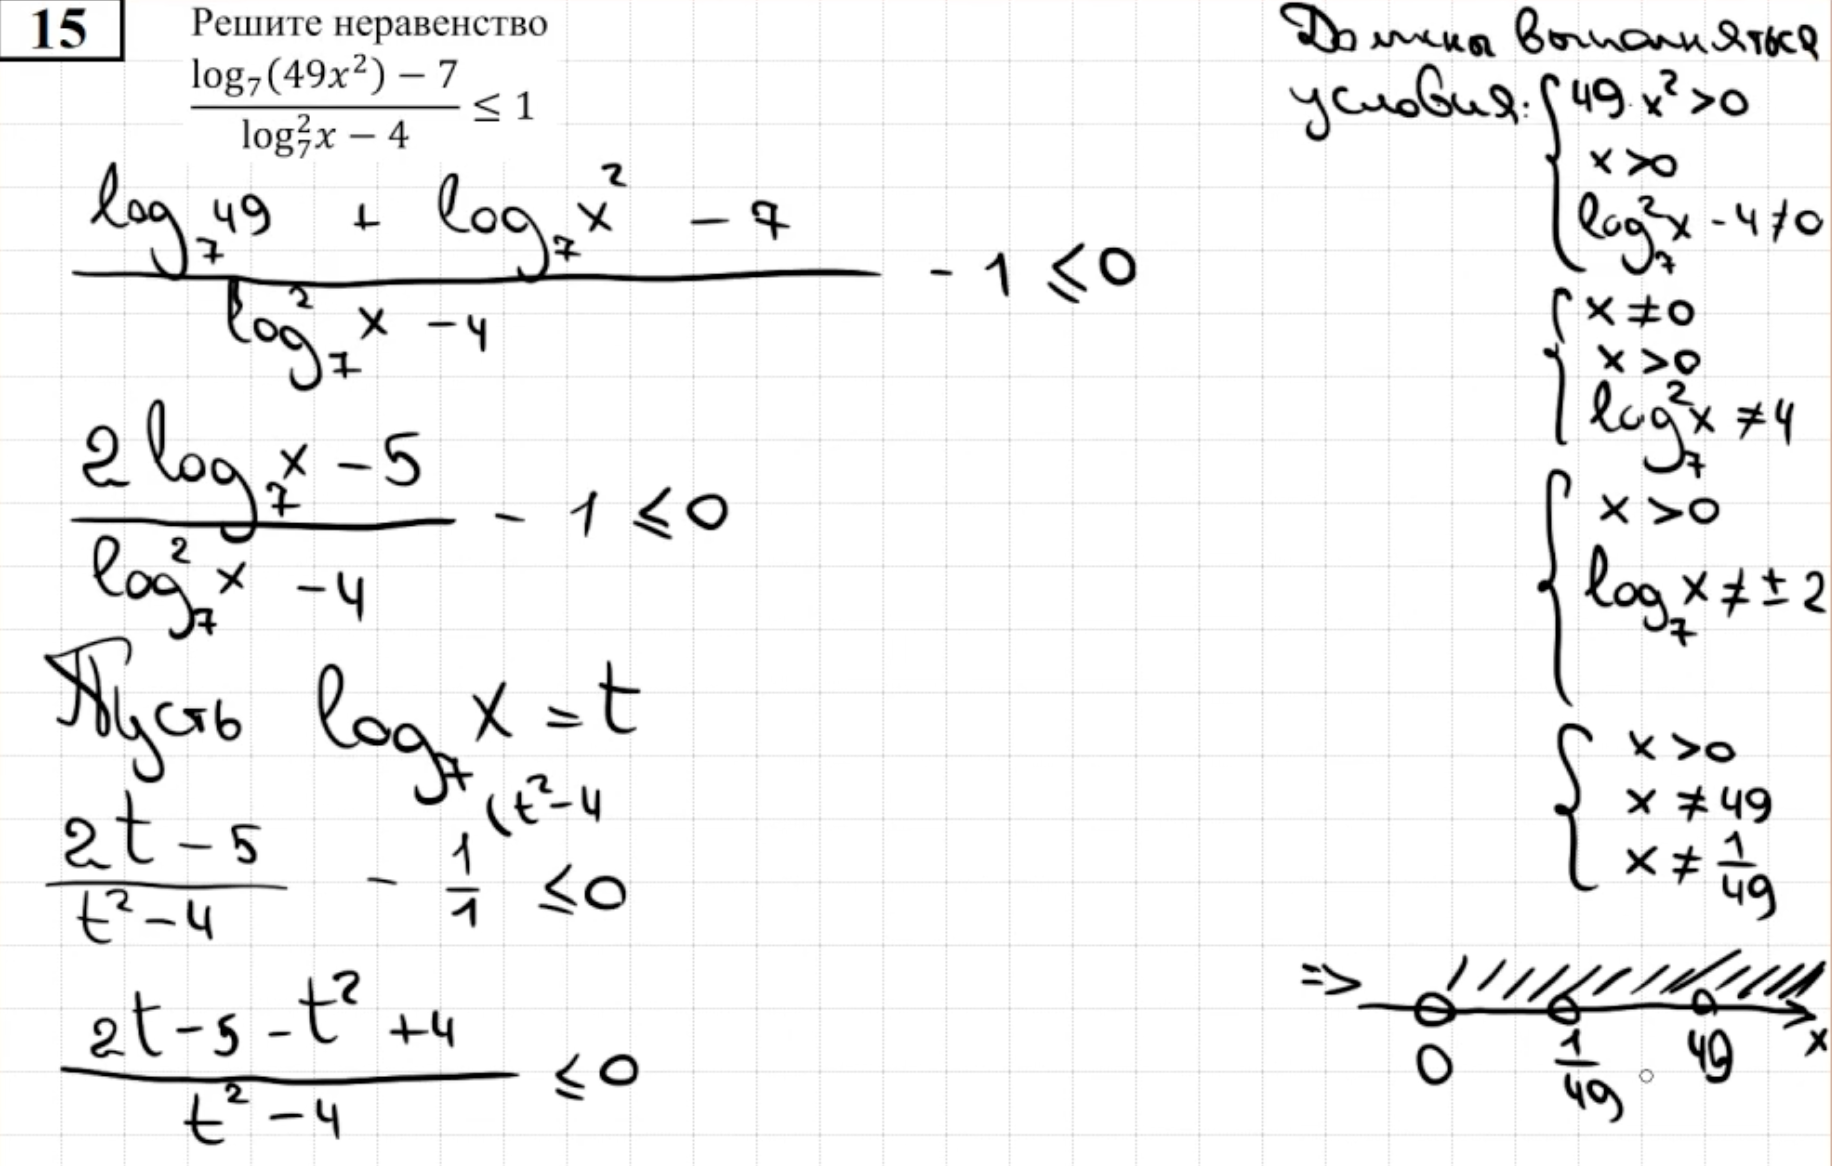 15
Решите неравенство
(log₇(49x²) − 7)/(log₇²x − 4) ≤ 1
(log₇ 49 + log₇ x² − 7)/(log₇² x − 4) − 1 ≤ 0
(2 log₇ x − 5)/(log₇² x − 4) − 1 ≤ 0
Пусть log₇ x = t
(2t − 5)/(t² − 4) − 1/1 (t² − 4 ≤ 0
(2t − 5 − t² + 4)/(t² − 4) ≤ 0
Должны выполняться
условия: { 49·x² > 0
x > 0
log₇² x − 4 ≠ 0
{ x ≠ 0
x > 0
log₇² x ≠ 4
{ x > 0
log₇ x ≠ ± 2
{ x > 0
x ≠ 49
x ≠ 1/49
=>
0 1/49 49 x